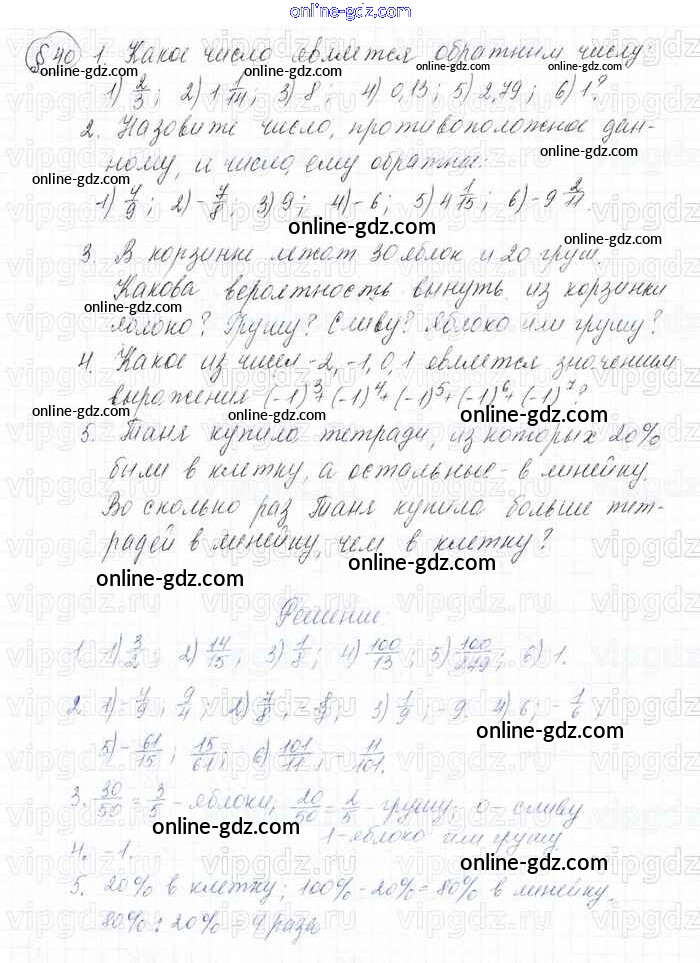 online-gdz.com
§ 40 1. Какое число является обратным числу:
1) 2/3; 2) 1 1/14; 3) 8; 4) 0,13; 5) 2,79; 6) 1?
2. Назовите число, противоположное дан-
ному, и число, ему обратное:
1) 4/9; 2) -7/8; 3) 9; 4) -6; 5) 4 1/15; 6) -9 2/11.
3. В корзинке лежат 30 яблок и 20 груш.
Какова вероятность вынуть из корзинки
яблоко? Грушу? Сливу? Яблоко или грушу?
4. Какое из чисел -2, -1, 0, 1 является значением
выражения (-1)³+(-1)⁴+(-1)⁵+(-1)⁶+(-1)⁷?
5. Таня купила тетради, из которых 20%
были в клетку, а остальные - в линейку.
Во сколько раз Таня купила больше тет-
радей в линейку, чем в клетку?
online-gdz.com
Решение
1. 1) 3/2; 2) 14/15; 3) 1/8; 4) 100/13; 5) 100/279; 6) 1.
2. 1) -4/9; 9/4; 2) 7/8; -8/7; 3) 1/9; -9. 4) 6; -1/6;
5) -61/15; 15/61; 6) 101/11; -11/101.
3. 30/50 = 3/5 - яблоки; 20/50 = 2/5 - грушу; 0 - сливу
1 - яблоко или грушу
4. -1.
5. 20% в клетку; 100% - 20% = 80% в линейку.
80% : 20% = 4 раза